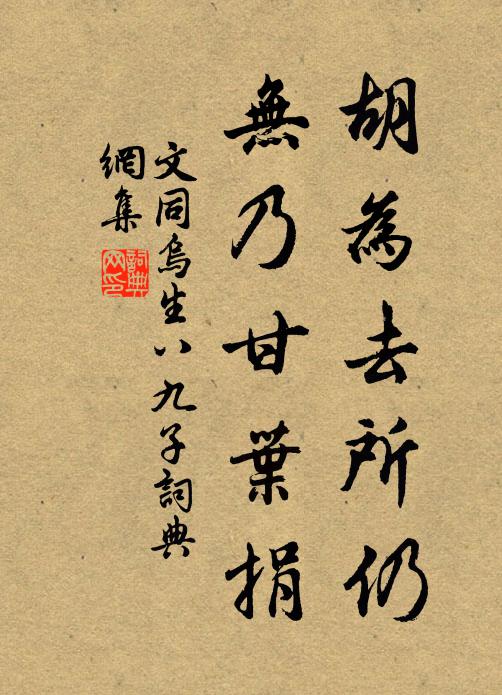 胡為去所仍
無乃甘葉捐
文同烏生八九子詞典
網集
詞典
网印